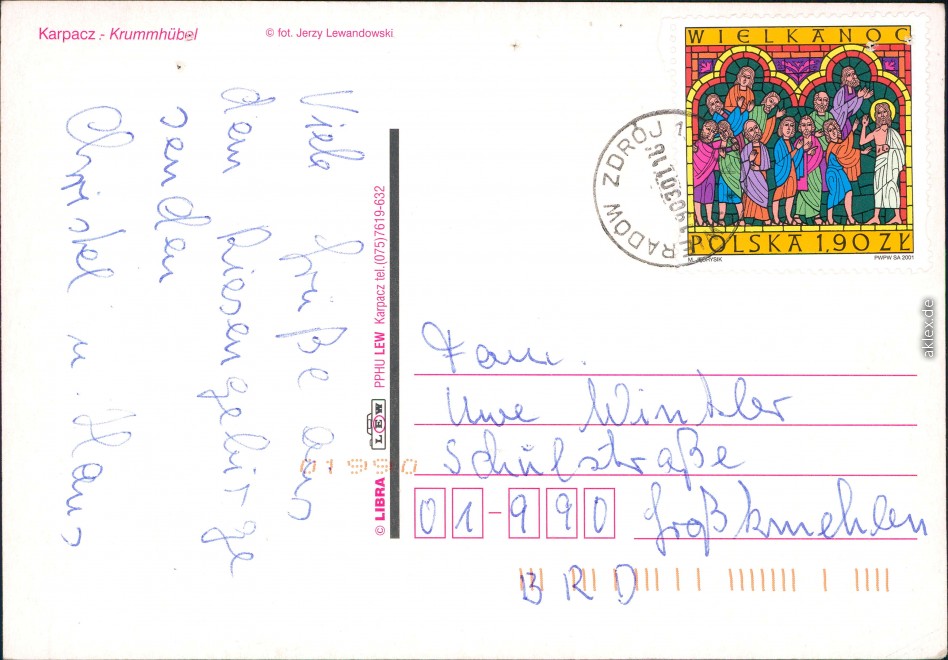 Karpacz - Krummhübel
© fot. Jerzy Lewandowski
Viele Grüße aus
dem Riesengebirge
senden
Christel u. Hans
© LIBRA LEW PPHU LEW Karpacz tel.(075)7619-632
WIELKANOC
POLSKA 1,90 ZŁ
M. JĘDRYSIK
PWPW SA 2001
ERADÓW ZDRÓJ 1
Fam.
Uwe Winkler
Schulstraße
01-990 Großkmehlen
BRD
01990
aklex.de